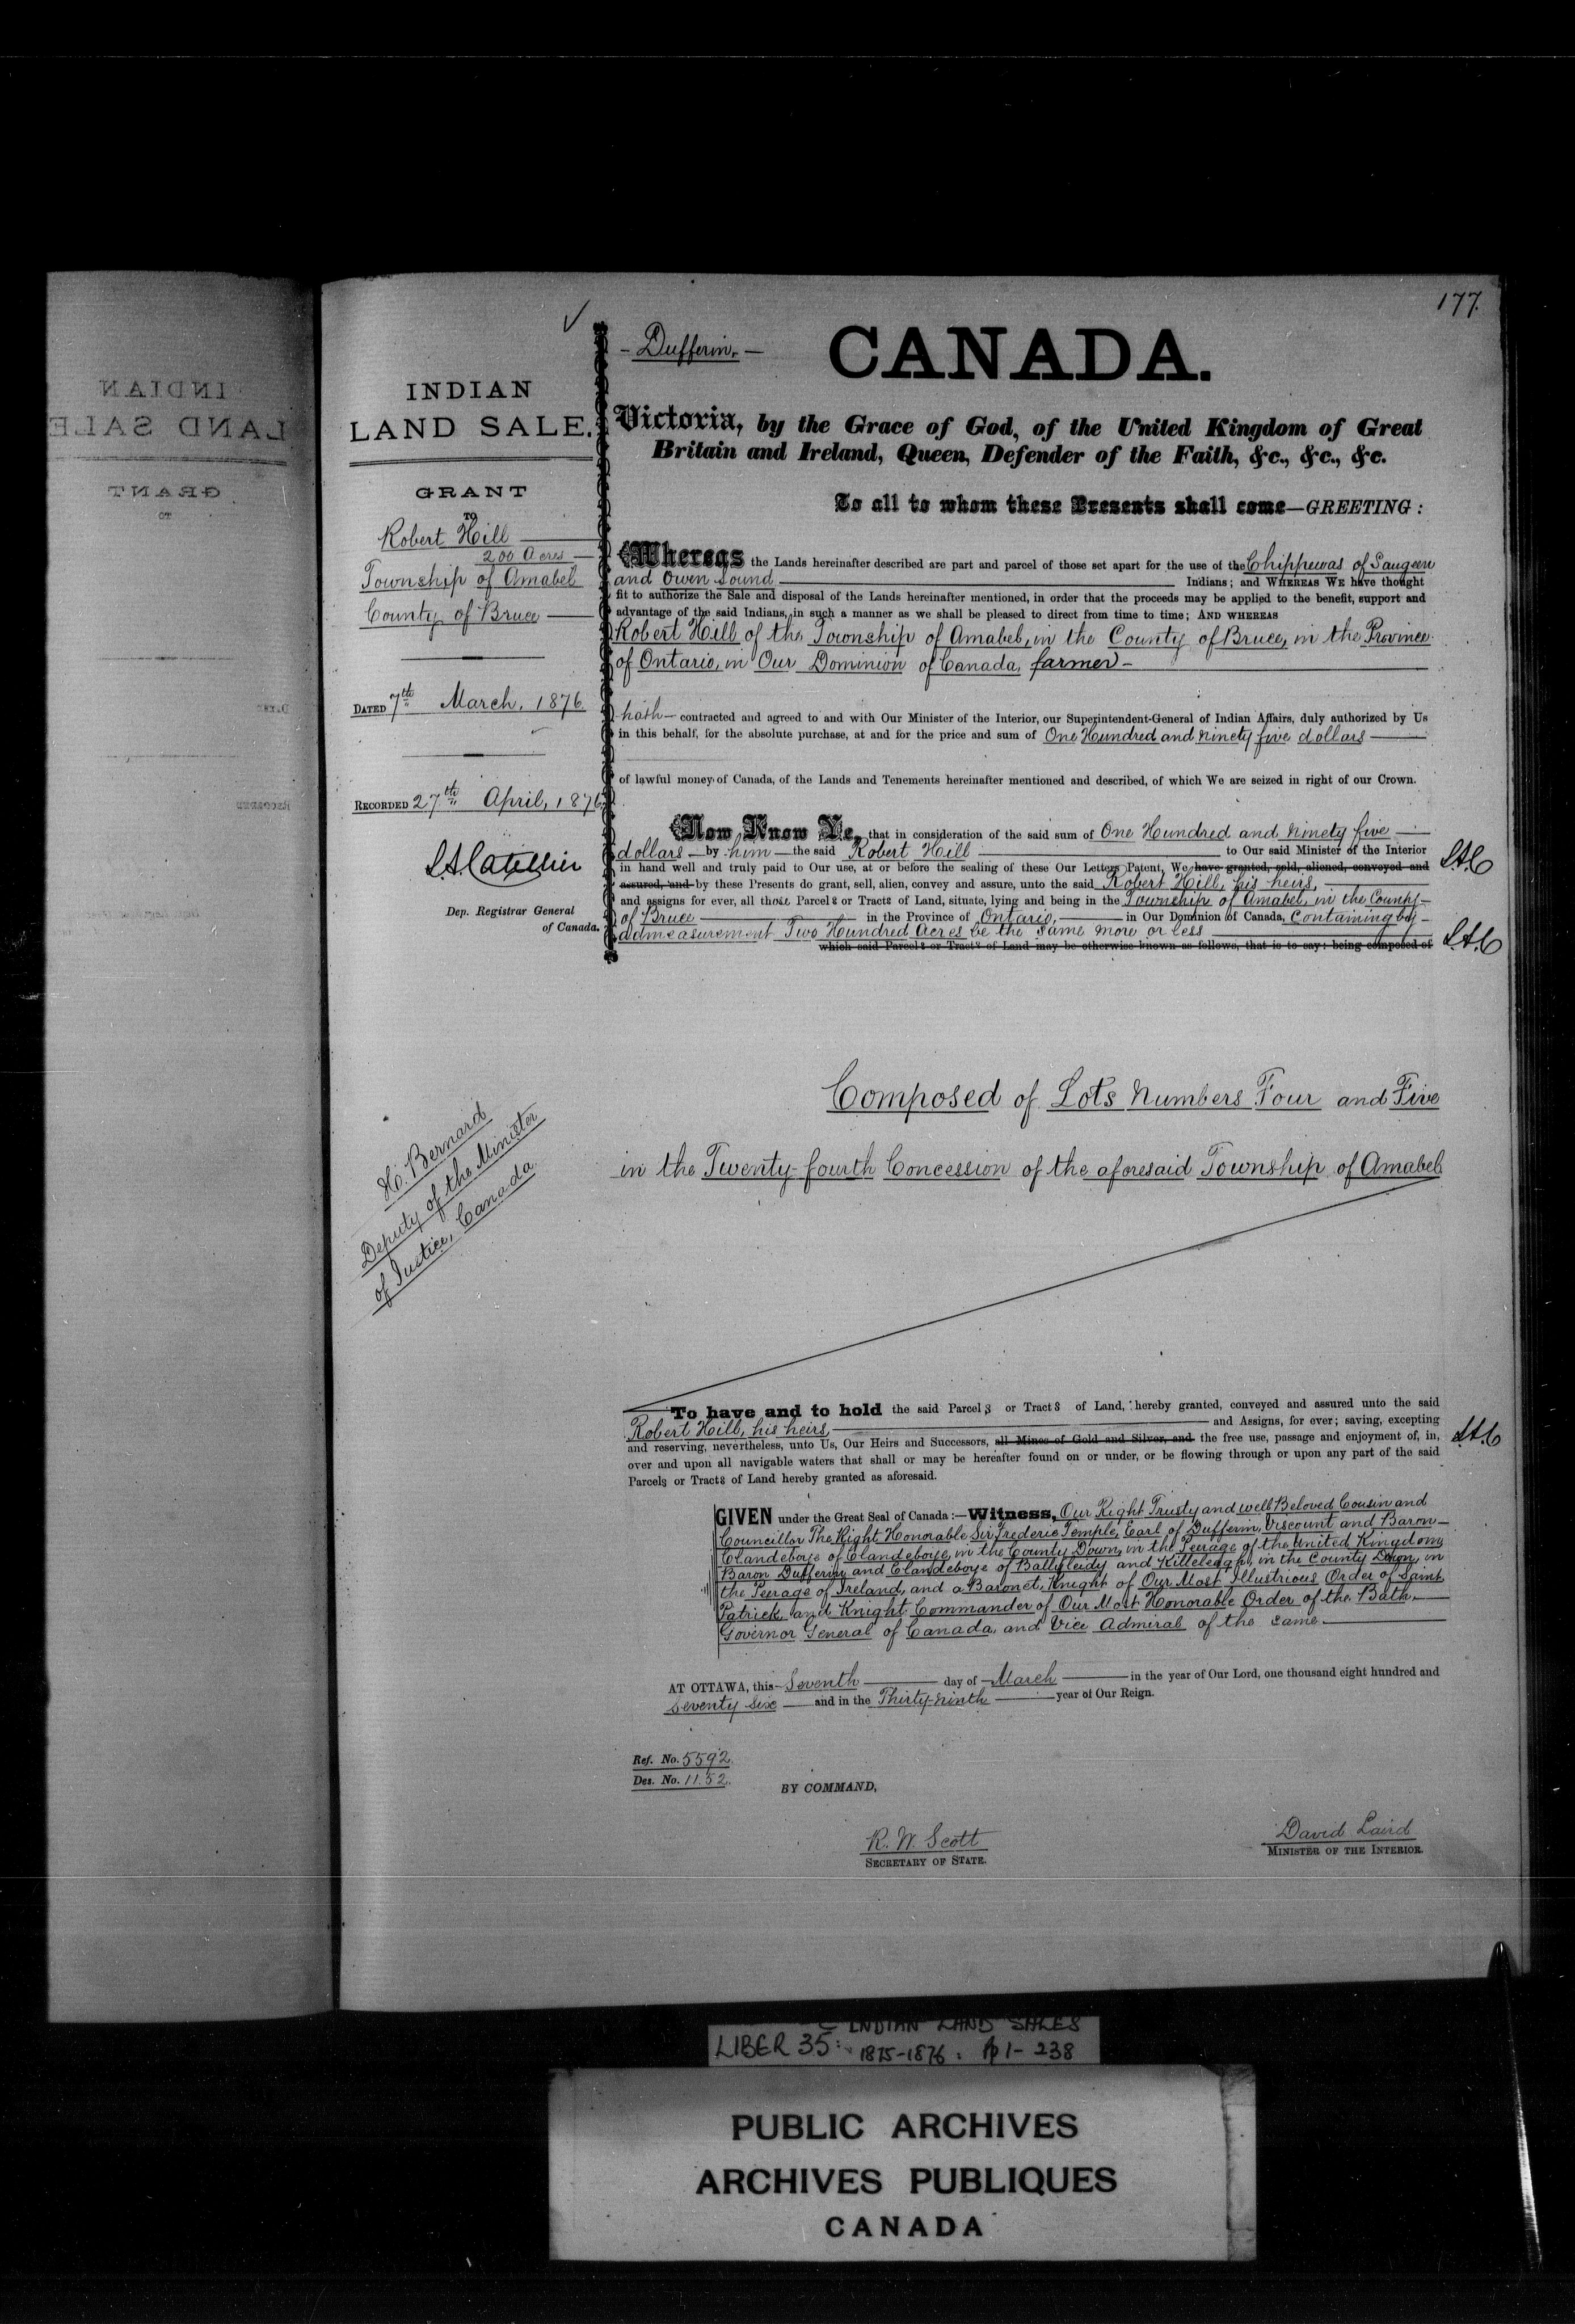 177.
INDIAN
LAND SALE.
GRANT
TO
Robert Hill
200 Acres
Township of Amabel
County of Bruce
DATED 7th March, 1876
RECORDED 27th April, 1876
L.A. Catellier
Dep. Registrar General
of Canada.
H. Bernard
Deputy of the Minister
of Justice, Canada
- Dufferin. -
CANADA.
Victoria, by the Grace of God, of the United Kingdom of Great
Britain and Ireland, Queen, Defender of the Faith, &c., &c., &c.
To all to whom these Presents shall come—GREETING:
Whereas the Lands hereinafter described are part and parcel of those set apart for the use of the Chippewas of Saugeen
and Owen Sound Indians; and WHEREAS WE have thought
fit to authorize the Sale and disposal of the Lands hereinafter mentioned, in order that the proceeds may be applied to the benefit, support and
advantage of the said Indians, in such a manner as we shall be pleased to direct from time to time; AND WHEREAS
Robert Hill of the Township of Amabel, in the County of Bruce, in the Province
of Ontario, in Our Dominion of Canada, farmer -
hath - contracted and agreed to and with Our Minister of the Interior, our Superintendent-General of Indian Affairs, duly authorized by Us
in this behalf, for the absolute purchase, at and for the price and sum of One Hundred and ninety five dollars
of lawful money of Canada, of the Lands and Tenements hereinafter mentioned and described, of which We are seized in right of our Crown.
Now Know Ye, that in consideration of the said sum of One Hundred and ninety five
dollars - by him - the said Robert Hill to Our said Minister of the Interior
in hand well and truly paid to Our use, at or before the sealing of these Our Letters Patent, We have granted, sold, aliened, conveyed and L.A.C
assured, and by these Presents do grant, sell, alien, convey and assure, unto the said Robert Hill, his heirs,
and assigns for ever, all those Parcels or Tracts of Land, situate, lying and being in the Township of Amabel, in the County
of Bruce in the Province of Ontario, in Our Dominion of Canada, Containing by
admeasurement Two Hundred Acres be the same more or less
which said Parcels or Tracts of Land may be otherwise known as follows, that is to say: being composed of L.A.C
Composed of Lots Numbers Four and Five
in the Twenty-fourth Concession of the aforesaid Township of Amabel
To have and to hold the said Parcels or Tracts of Land, hereby granted, conveyed and assured unto the said
Robert Hill, his heirs, and Assigns, for ever; saving, excepting
and reserving, nevertheless, unto Us, Our Heirs and Successors, all Mines of Gold and Silver, and the free use, passage and enjoyment of, in, L.A.C
over and upon all navigable waters that shall or may be hereafter found on or under, or be flowing through or upon any part of the said
Parcels or Tracts of Land hereby granted as aforesaid.
GIVEN under the Great Seal of Canada:—Witness, Our Right Trusty and well Beloved Cousin and
Councillor The Right Honorable Sir Frederic Temple, Earl of Dufferin, Viscount and Baron
Clandeboye of Clandeboye, in the County Down, in the Peerage of the United Kingdom,
Baron Dufferin and Clandeboye of Ballyleidy and Killeleagh, in the County Down, in
the Peerage of Ireland, and a Baronet, Knight of Our Most Illustrious Order of Saint
Patrick, and Knight Commander of Our Most Honorable Order of the Bath,
Governor General of Canada, and Vice Admiral of the same.
AT OTTAWA, this Seventh day of March in the year of Our Lord, one thousand eight hundred and
seventy six and in the Thirty-ninth year of Our Reign.
Ref. No. 5592.
Des. No. 1152.
BY COMMAND,
R. W. Scott
SECRETARY OF STATE.
David Laird
MINISTER OF THE INTERIOR.
INDIAN LAND SALES
LIBER 35: 1875-1876: pp 1-238
PUBLIC ARCHIVES
ARCHIVES PUBLIQUES
CANADA